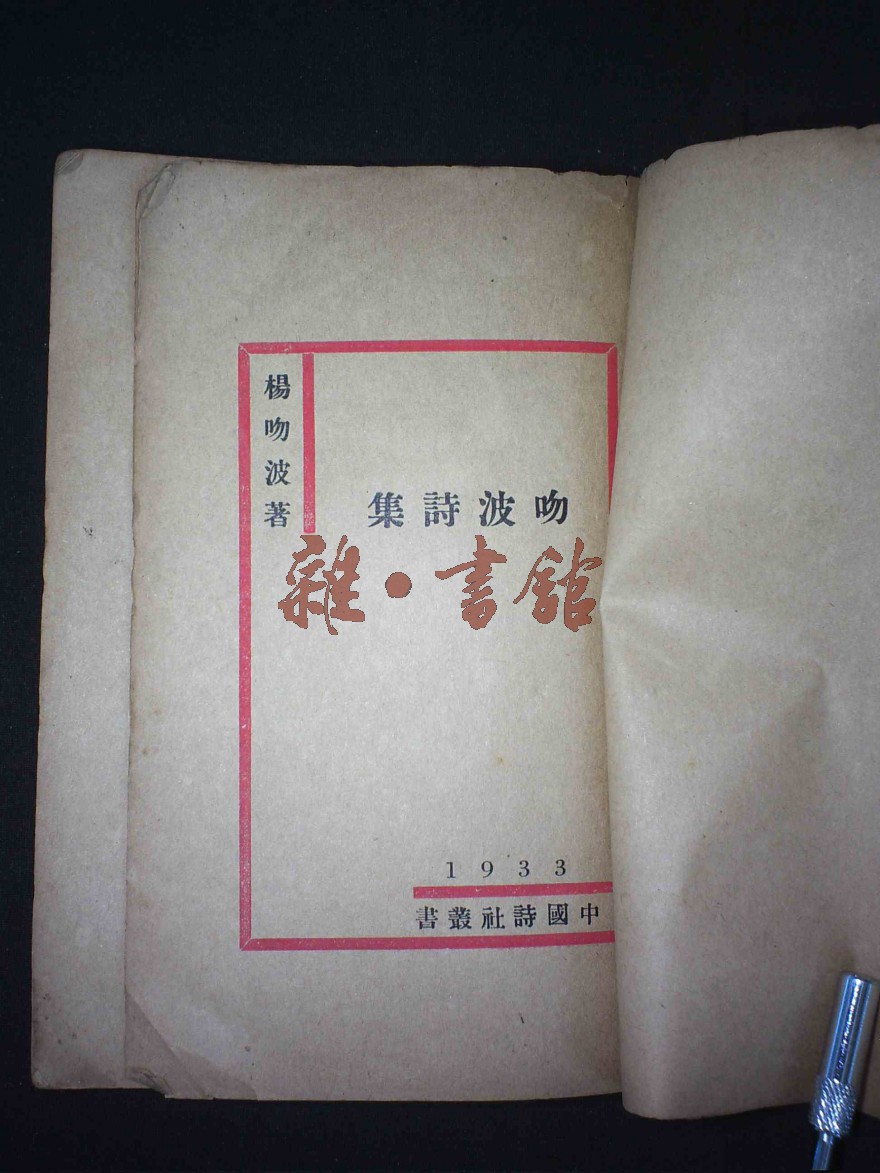 吻波詩集
楊吻波著
雜·書館
1933
中國詩社叢書